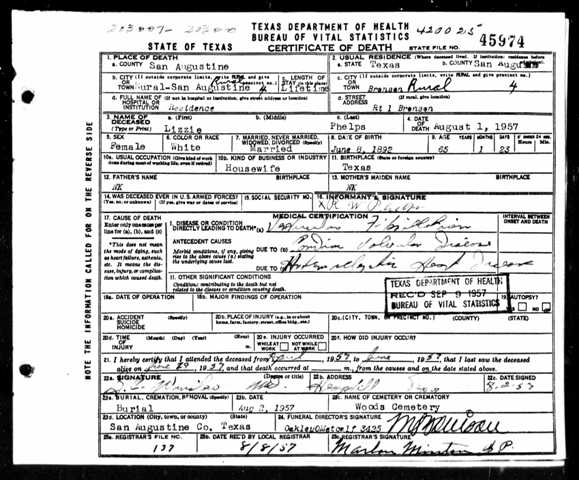 TEXAS DEPARTMENT OF HEALTH
BUREAU OF VITAL STATISTICS
STATE OF TEXAS CERTIFICATE OF DEATH STATE FILE NO. 45974
1. PLACE OF DEATH 2. USUAL RESIDENCE (Where deceased lived. If institution: residence before admission)
a. COUNTY San Augustine a. STATE Texas b. COUNTY San Aug
b. CITY (If outside corporate limits, write RURAL and give precinct no.) c. LENGTH OF STAY (in this place) c. CITY (If outside corporate limits, write RURAL and give precinct no.)
Rural
TOWN ural-San Augustine 4 Lifetime Bronson Rural 4
d. FULL NAME OF HOSPITAL OR INSTITUTION (If not in hospital or institution, give street address or location) d. STREET ADDRESS (If rural, give location)
Residence Rt 1 Bronson
3. NAME OF DECEASED (Type or Print) a. (First) b. (Middle) c. (Last) 4. DATE OF DEATH
Lizzie Phelps August 1, 1957
5. SEX 6. COLOR OR RACE 7. MARRIED, NEVER MARRIED, WIDOWED, DIVORCED (Specify) 8. DATE OF BIRTH
Female White Married June 8, 1892 65 1 23
10a. USUAL OCCUPATION (Give kind of work done during most of working life, even if retired) 10b. KIND OF BUSINESS OR INDUSTRY 11. BIRTHPLACE (State or foreign country)
Housewife Texas
12. FATHER'S NAME BIRTHPLACE 13. MOTHER'S MAIDEN NAME BIRTHPLACE
NK NK
14. WAS DECEASED EVER IN U.S. ARMED FORCES? (If yes, give war or dates of service) 15. SOCIAL SECURITY NO. 16. INFORMANT'S SIGNATURE
17. CAUSE OF DEATH MEDICAL CERTIFICATION INTERVAL BETWEEN ONSET AND DEATH
Enter only one cause per line for (a), (b), and (c)
I. DISEASE OR CONDITION DIRECTLY LEADING TO DEATH* (a)
*This does not mean the mode of dying, such as heart failure, asthenia, etc. It means the disease, injury, or complication which caused death.
ANTECEDENT CAUSES
Morbid conditions, if any, giving rise to the above cause (a) stating the underlying cause last.
DUE TO (b)
DUE TO (c) Heart Disease
11. OTHER SIGNIFICANT CONDITIONS
Conditions contributing to the death but not related to the disease or condition causing death.
TEXAS DEPARTMENT OF HEALTH
REC'D SEP 9 1957
BUREAU OF VITAL STATISTICS
18a. DATE OF OPERATION 18b. MAJOR FINDINGS OF OPERATION 19. AUTOPSY?
20a. ACCIDENT SUICIDE HOMICIDE (Specify) 20b. PLACE OF INJURY (e.g., in or about home, farm, factory, street, office bldg., etc.) 20c. (CITY, TOWN, OR PRECINCT NO.) (COUNTY) (STATE)
20d. TIME OF INJURY (Month) (Day) (Year) (Hour) 20e. INJURY OCCURRED WHILE AT WORK NOT WHILE AT WORK 20f. HOW DID INJURY OCCUR?
21. I hereby certify that I attended the deceased from April 1957, to June 1957, that I last saw the deceased
alive on June 29 1957, and that death occurred at m., from the causes and on the date stated above.
22a. SIGNATURE (Degree or title) 22b. ADDRESS 22c. DATE SIGNED
MD Hemphill 8-2-57
23a. BURIAL, CREMATION, REMOVAL (Specify) 23b. DATE 23c. NAME OF CEMETERY OR CREMATORY
Burial Aug 2, 1957 Woods Cemetery
23d. LOCATION (City, town, or county) (State) 24. FUNERAL DIRECTOR'S SIGNATURE
San Augustine Co. Texas
25a. REGISTRAR'S FILE NO. 25b. DATE REC'D BY LOCAL REGISTRAR 25c. REGISTRAR'S SIGNATURE
137 8/8/57 Marlon Minton J.P.
NOTE THE INFORMATION CALLED FOR ON THE REVERSE SIDE